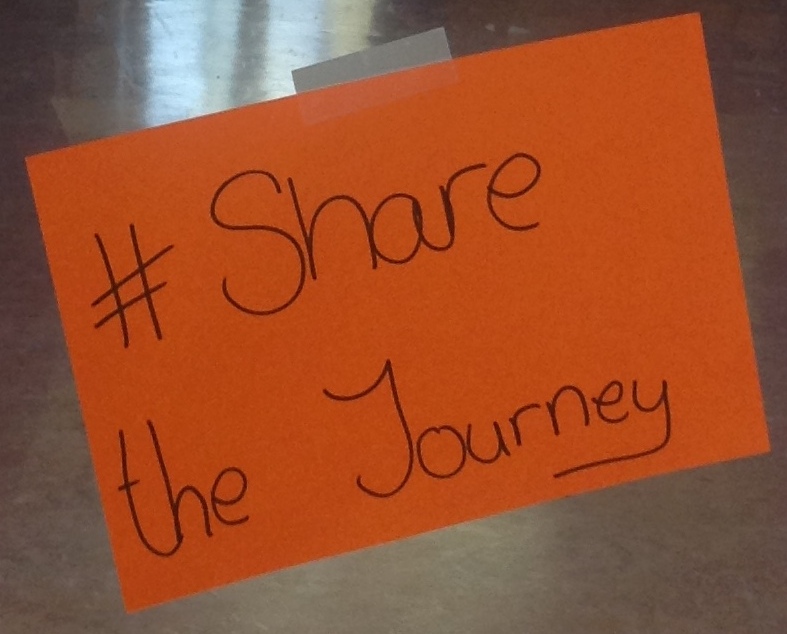 # Share
the Journey